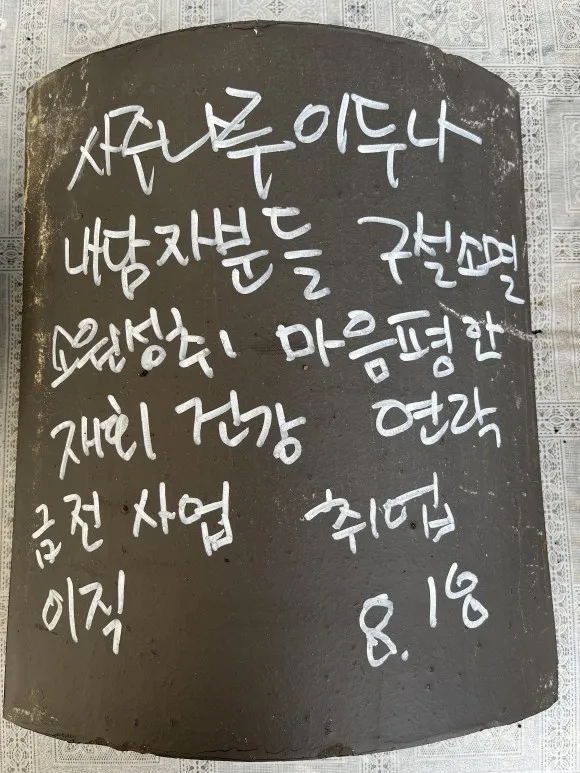 사주나루 이두나
내담자분들 구설소멸
소원성취 마음평안
재회 건강 연락
금전 사업 취업
이직 8.18